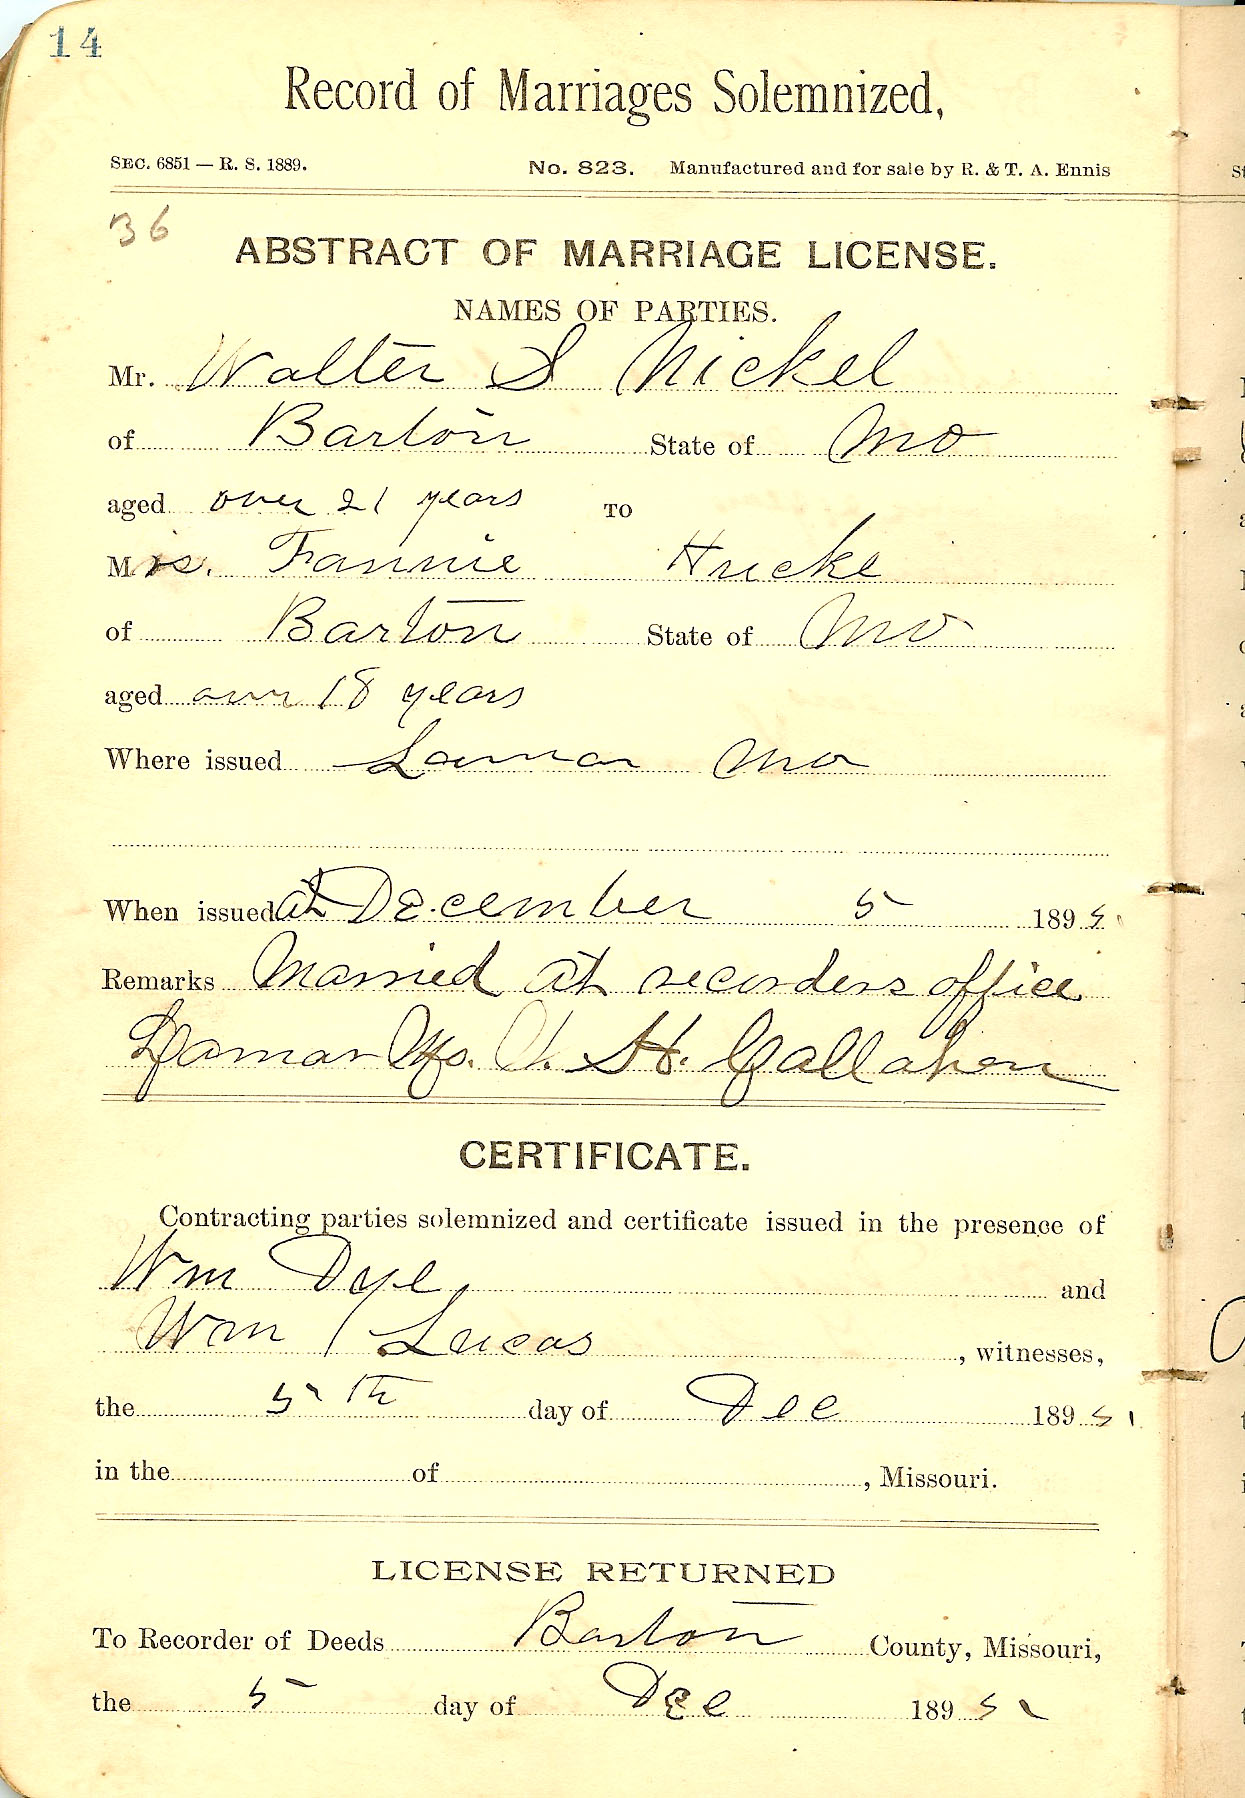 14
Record of Marriages Solemnized,
SEC. 6851 — R. S. 1889. No. 823. Manufactured and for sale by R. & T. A. Ennis
36
ABSTRACT OF MARRIAGE LICENSE.
NAMES OF PARTIES.
Mr. Walter S Nickel
of Barton State of Mo
aged over 21 years TO
Mrs. Fannie Hucke
of Barton State of Mo
aged over 18 years
Where issued Lamar Mo
When issued at December 5 1895
Remarks Married at recorders office
Lamar Mo. H. Callahen
CERTIFICATE.
Contracting parties solemnized and certificate issued in the presence of
Wm Dye and
Wm Lucas, witnesses,
the 5th day of Dec 1895
in the of , Missouri.
LICENSE RETURNED
To Recorder of Deeds Barton County, Missouri,
the 5 day of Dec 1895